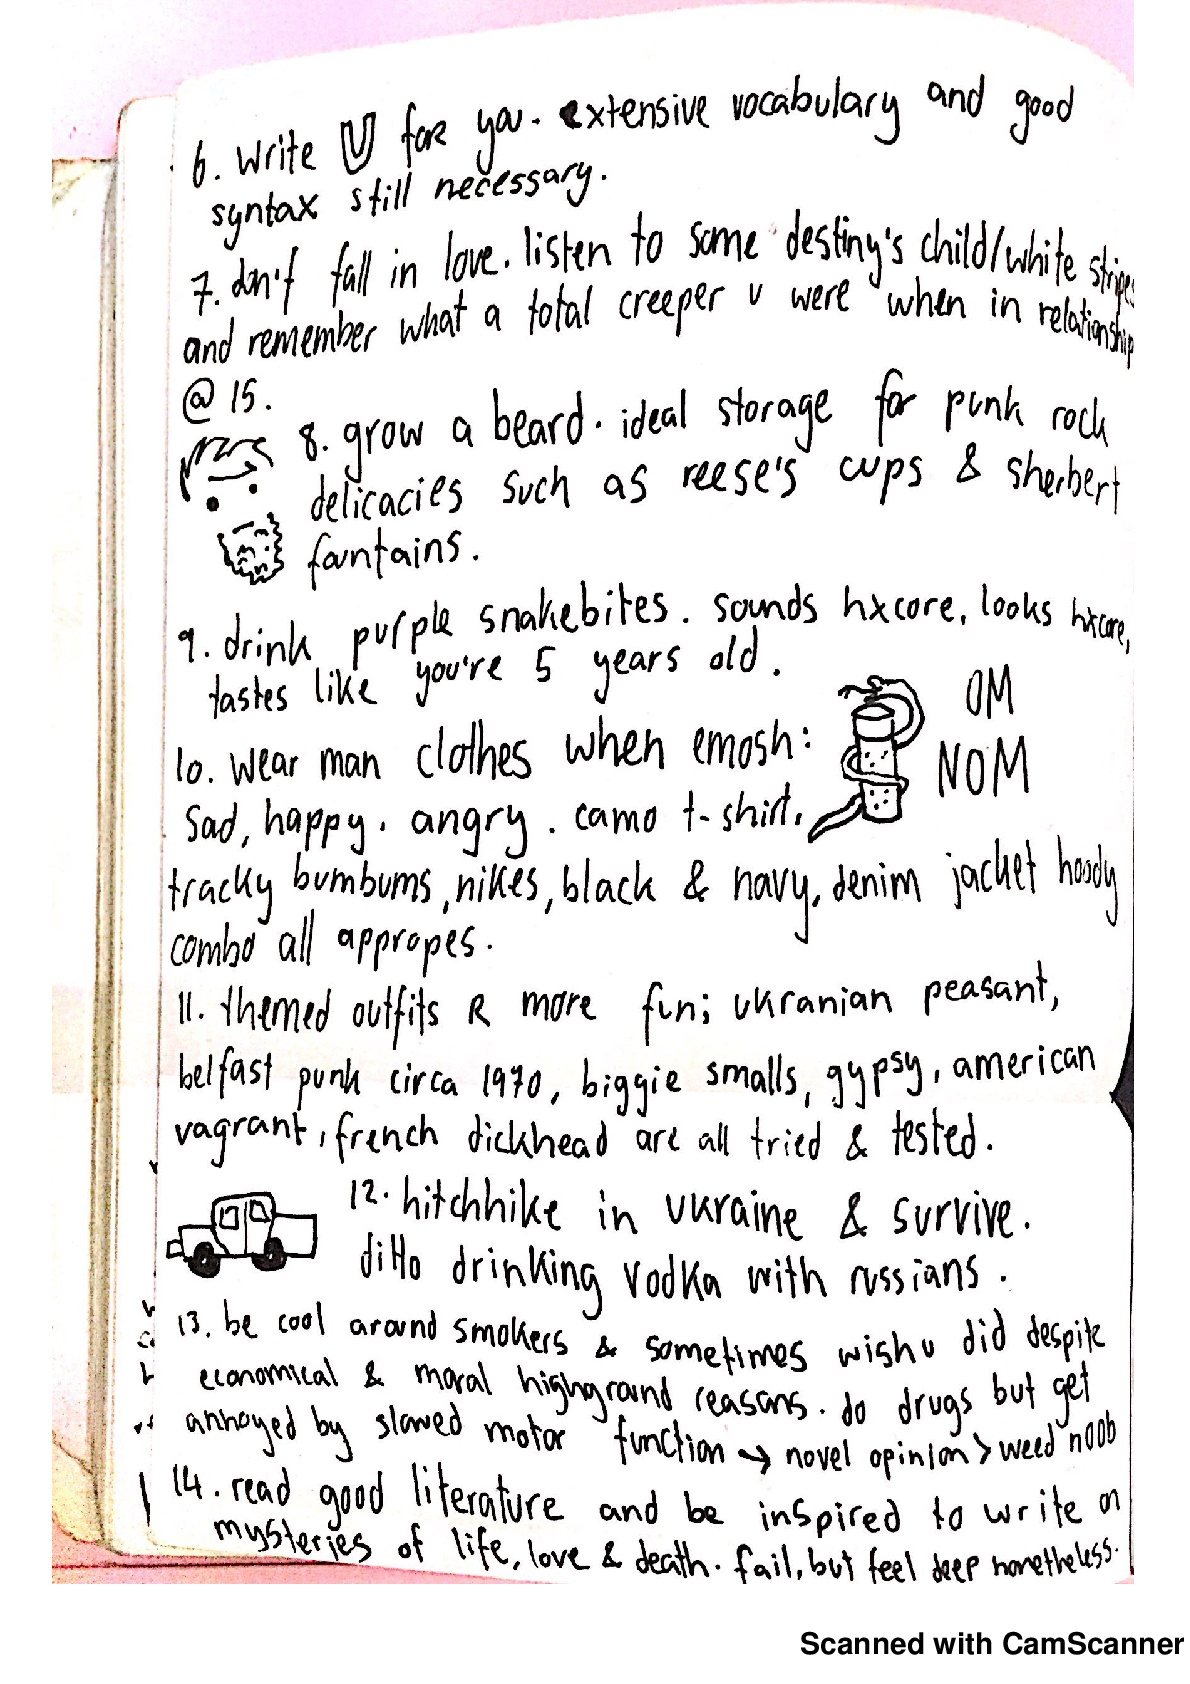 6. write U for you. extensive vocabulary and good
syntax still necessary.
7. don't fall in love. listen to some destiny's child/white stripes
and remember what a total creeper u were when in relationship
@ 15.
8. grow a beard. ideal storage for punk rock
delicacies such as reese's cups & sherbert
fountains.
9. drink purple snakebites. sounds hxcore, looks hxcore,
tastes like you're 5 years old.
OM
NOM
10. wear man clothes when emosh:
sad, happy. angry. camo t-shirt,
tracky bumbums, nikes, black & navy, denim jacket hoody
combo all appropes.
11. themed outfits R more fun; ukranian peasant,
belfast punk circa 1970, biggie smalls, gypsy, american
vagrant, french dickhead are all tried & tested.
12. hitchhike in ukraine & survive.
ditto drinking vodka with russians.
13. be cool around smokers & sometimes wish u did despite
economical & moral highground reasons. do drugs but get
annoyed by slowed motor function → novel opinion > weed noob
14. read good literature and be inspired to write on
mysteries of life, love & death. fail, but feel deep nonetheless.
Scanned with CamScanner